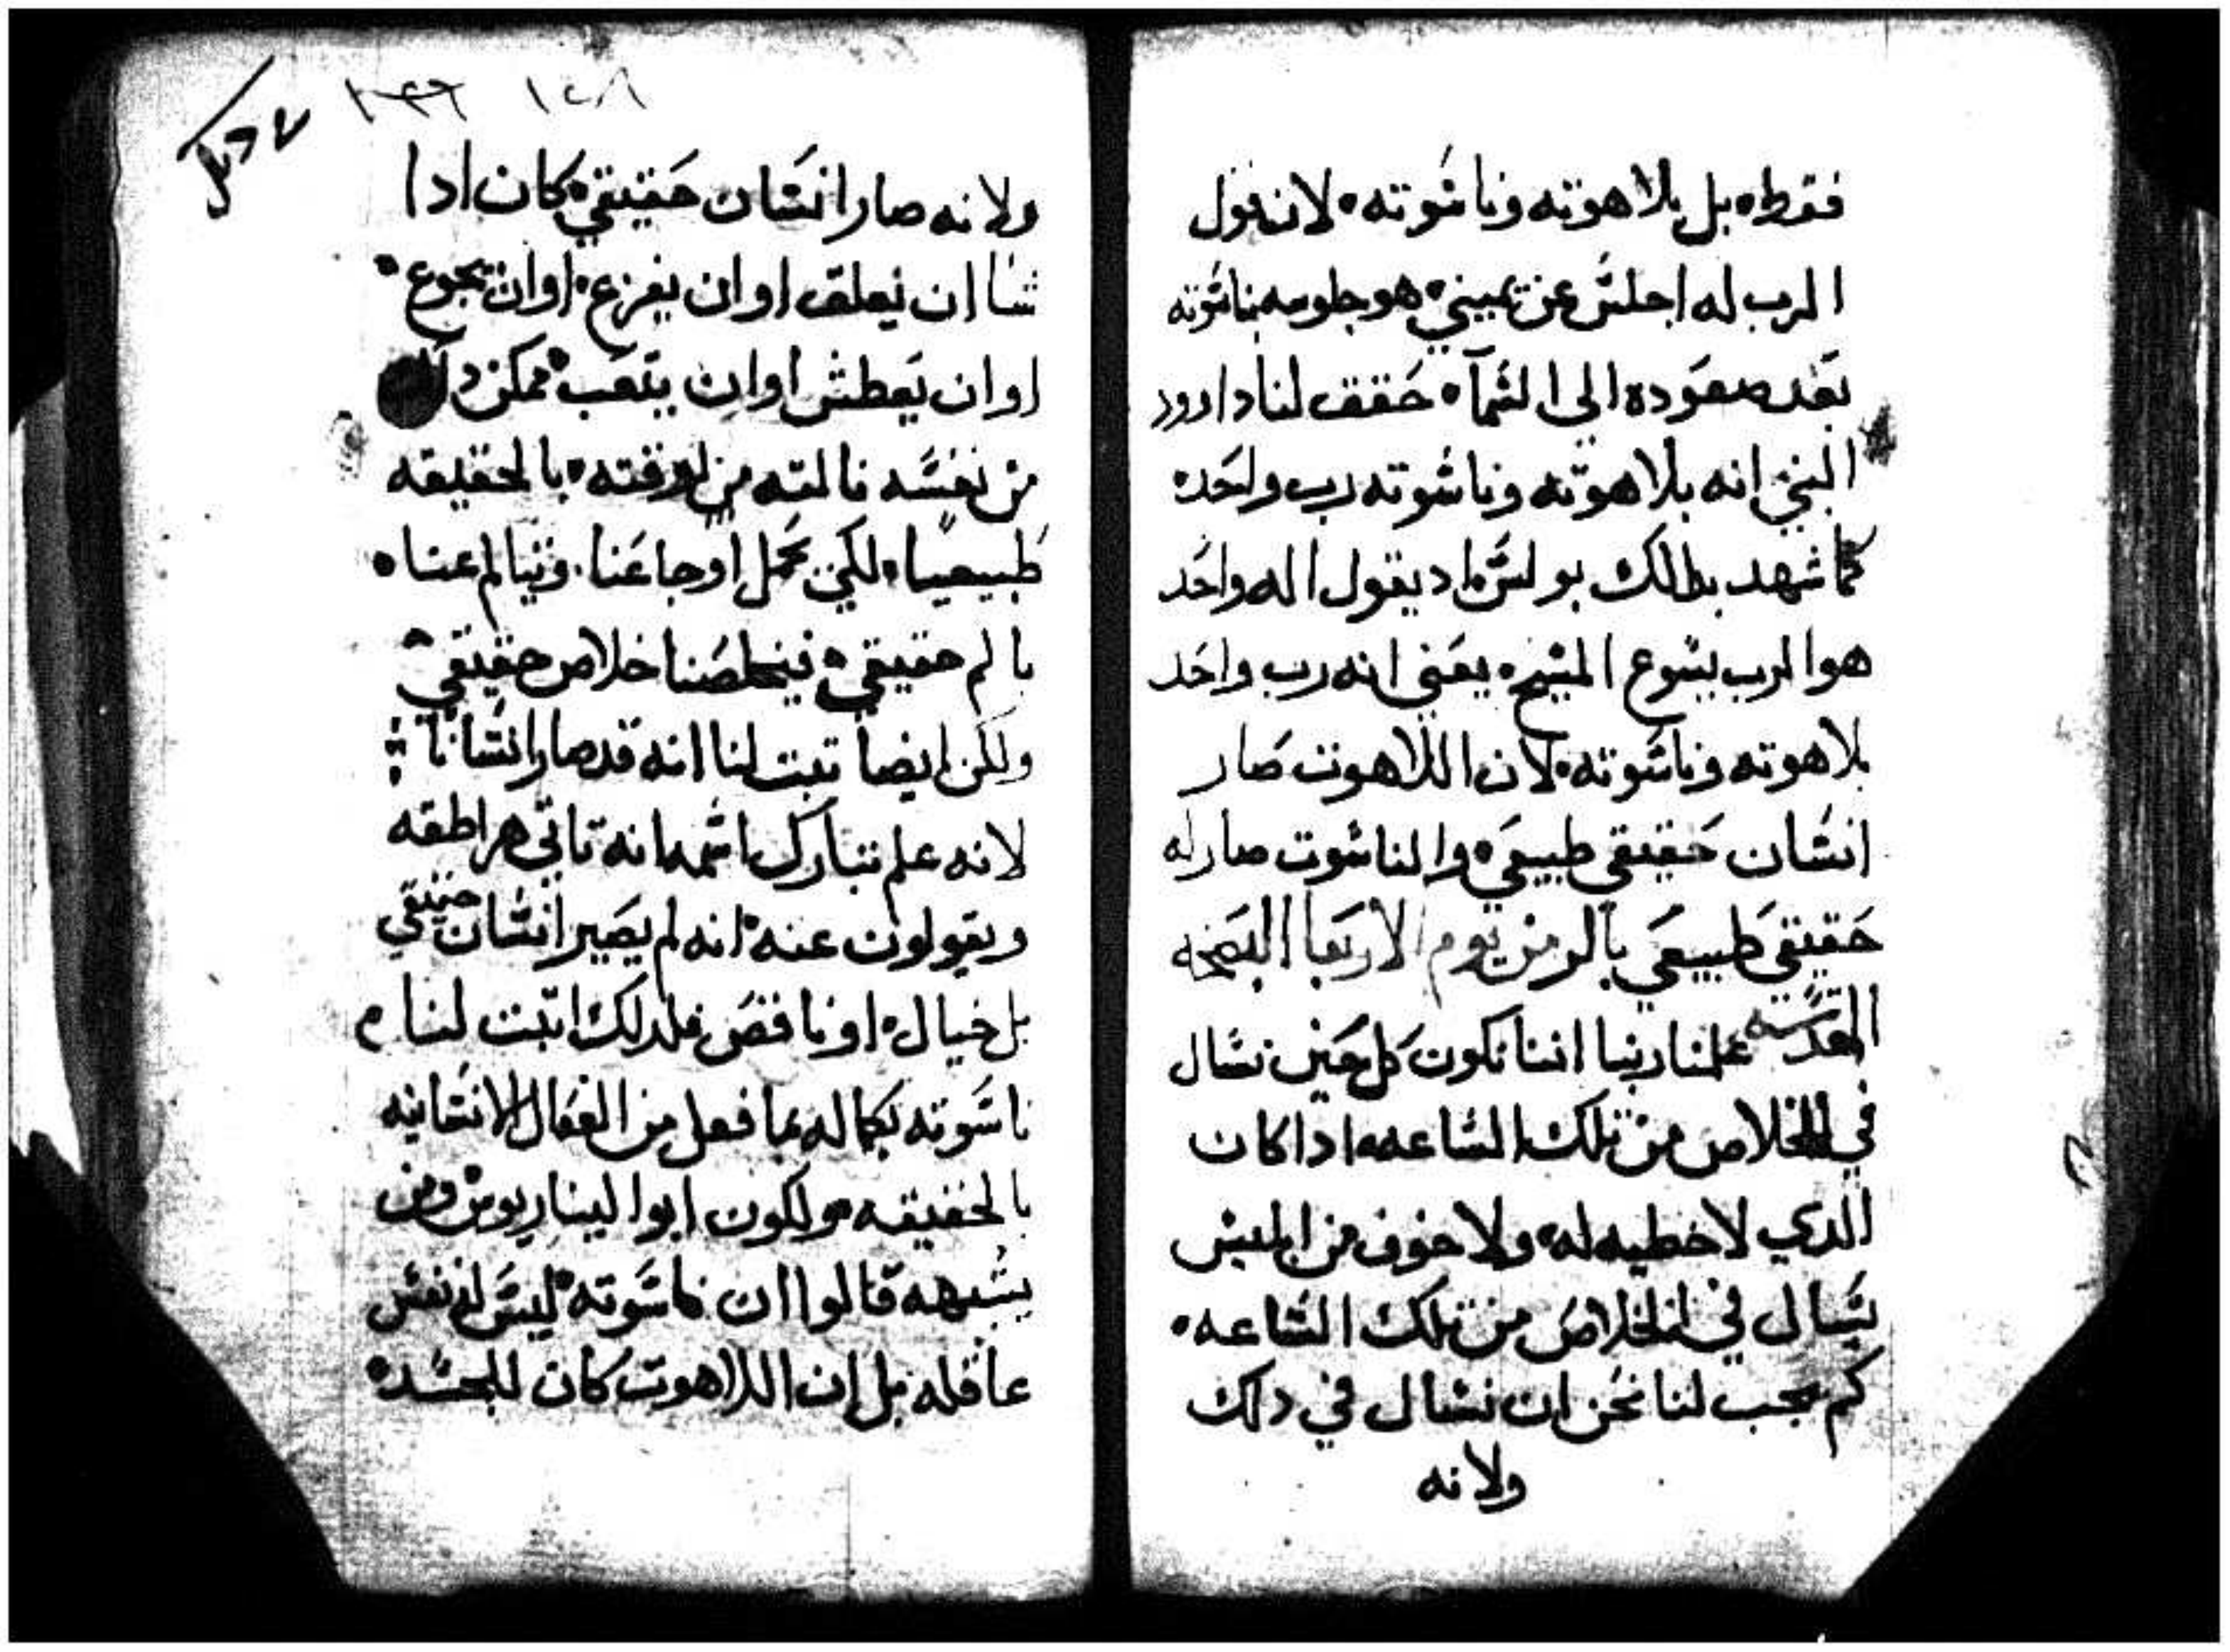 فقط ه بل بلاهوته وناسوته ه لان قول
الرب له اجلس عن يميني ه هو جلوسه بناسوته
بعد صعوده الي السمآ ه حقق لنا داوود
النبي انه بلاهوته وناسوته رب واحد ه
كما شهد بدالك بولس ه اد يقول اله واحد
هو الرب يسوع المسيح ه يعني انه رب واحد
بلاهوته وناسوته ه لان اللاهوت صار
انسان حقيقي طبيعي ه والناسوت صار اله
حقيقي طبيعي يوم الاربعا البصخه
المقدسه علمنا ربنا اننا نكون كل حين نسال
في الخلاص من تلك الساعه ه ادا كان
الدي لا خطيه له ه ولا خوف من ابليس
يسال في الخلاص من تلك الساعه ه
كم يجب لنا نحن ان نسال في دلك
ولانه
١٢٨
ولانه صار انسان حقيقي ه كان ادا
شا ان يعلق او ان يفزع ه او ان يجوع ه
او ان يعطش او ان يتعب ه ممكن
من نفسه بالحقيقه
طبيعيا ه لكي يحمل اوجاعنا ه ويتالم عنا ه
بالم حقيقي ه فيخلصنا خلاص حقيقي ه
ولكن ايضا تبت لنا انه قد صار انسانا
لانه علم تبارك اسمه انه تاتي هراطقه
ويقولون عنه ه انه لم يصير انسان حقيقي
بل خيال ه او ناقص فلدلك اتبت لنا
ناسوته بكماله بما فعل من الفعال الانسانيه
بالحقيقه ه ولكون ابوا ليناريوس ومن
يشبهه قالوا ان ناسوته ليس له نفس
عاقله بل ان اللاهوت كان للجسد ه